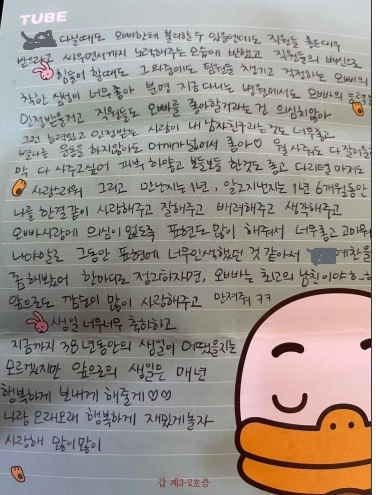 TUBE
다닐때도 오빠한테 불리할 수 있을텐데도 직원들 좋은대우
받으라고 싸우면서까지 노력해주는 모습에 반했고 직원들의 배신으로
힘들어 할때도 그 와중에도 팀원들 챙기고 걱정하는 오빠의
착한 심성이 너무좋아 분명 지금 다니는 병원에서도 오빠의 능력을
인정받을거고 직원들도 오빠를 좋아할거라는걸 의심치않아
그런 능력있고 인정받는 사람이 내 남자친구라는것도 너무좋고
별다른 운동을 하지않아도 어깨가넓어서 좋아♡
막 다 사주고싶어 피부 하얗고 보들보들 한것도 좋고 다리털 마저도
사랑스러워 그리고 만난지는 1년, 알고지낸지는 1년 6개월동안
나를 한결같이 사랑해주고 잘해주고 배려해주고 생각해주고
오빠사랑에 의심이 없도록 표현도 많이 해줘서 너무좋고 고마워
나야말로 그동안 표현에 너무인색했던 것 같아서
꼽 해봤어 한마디로 정리하자면, 오빠는 최고의 남친이야ㅎㅎ
앞으로도 많이 사랑해주고 만져줘 ㅋㅋ
생일 너무너무 축하하고
지금까지 38년동안의 생일이 어땠을지는
모르겠지만 앞으로의 생일은 매년
행복하게 보내게 해줄게♡♡
나랑 오래오래 행복하게 재밌게놀자
사랑해 많이많이
갑 제3-2호증